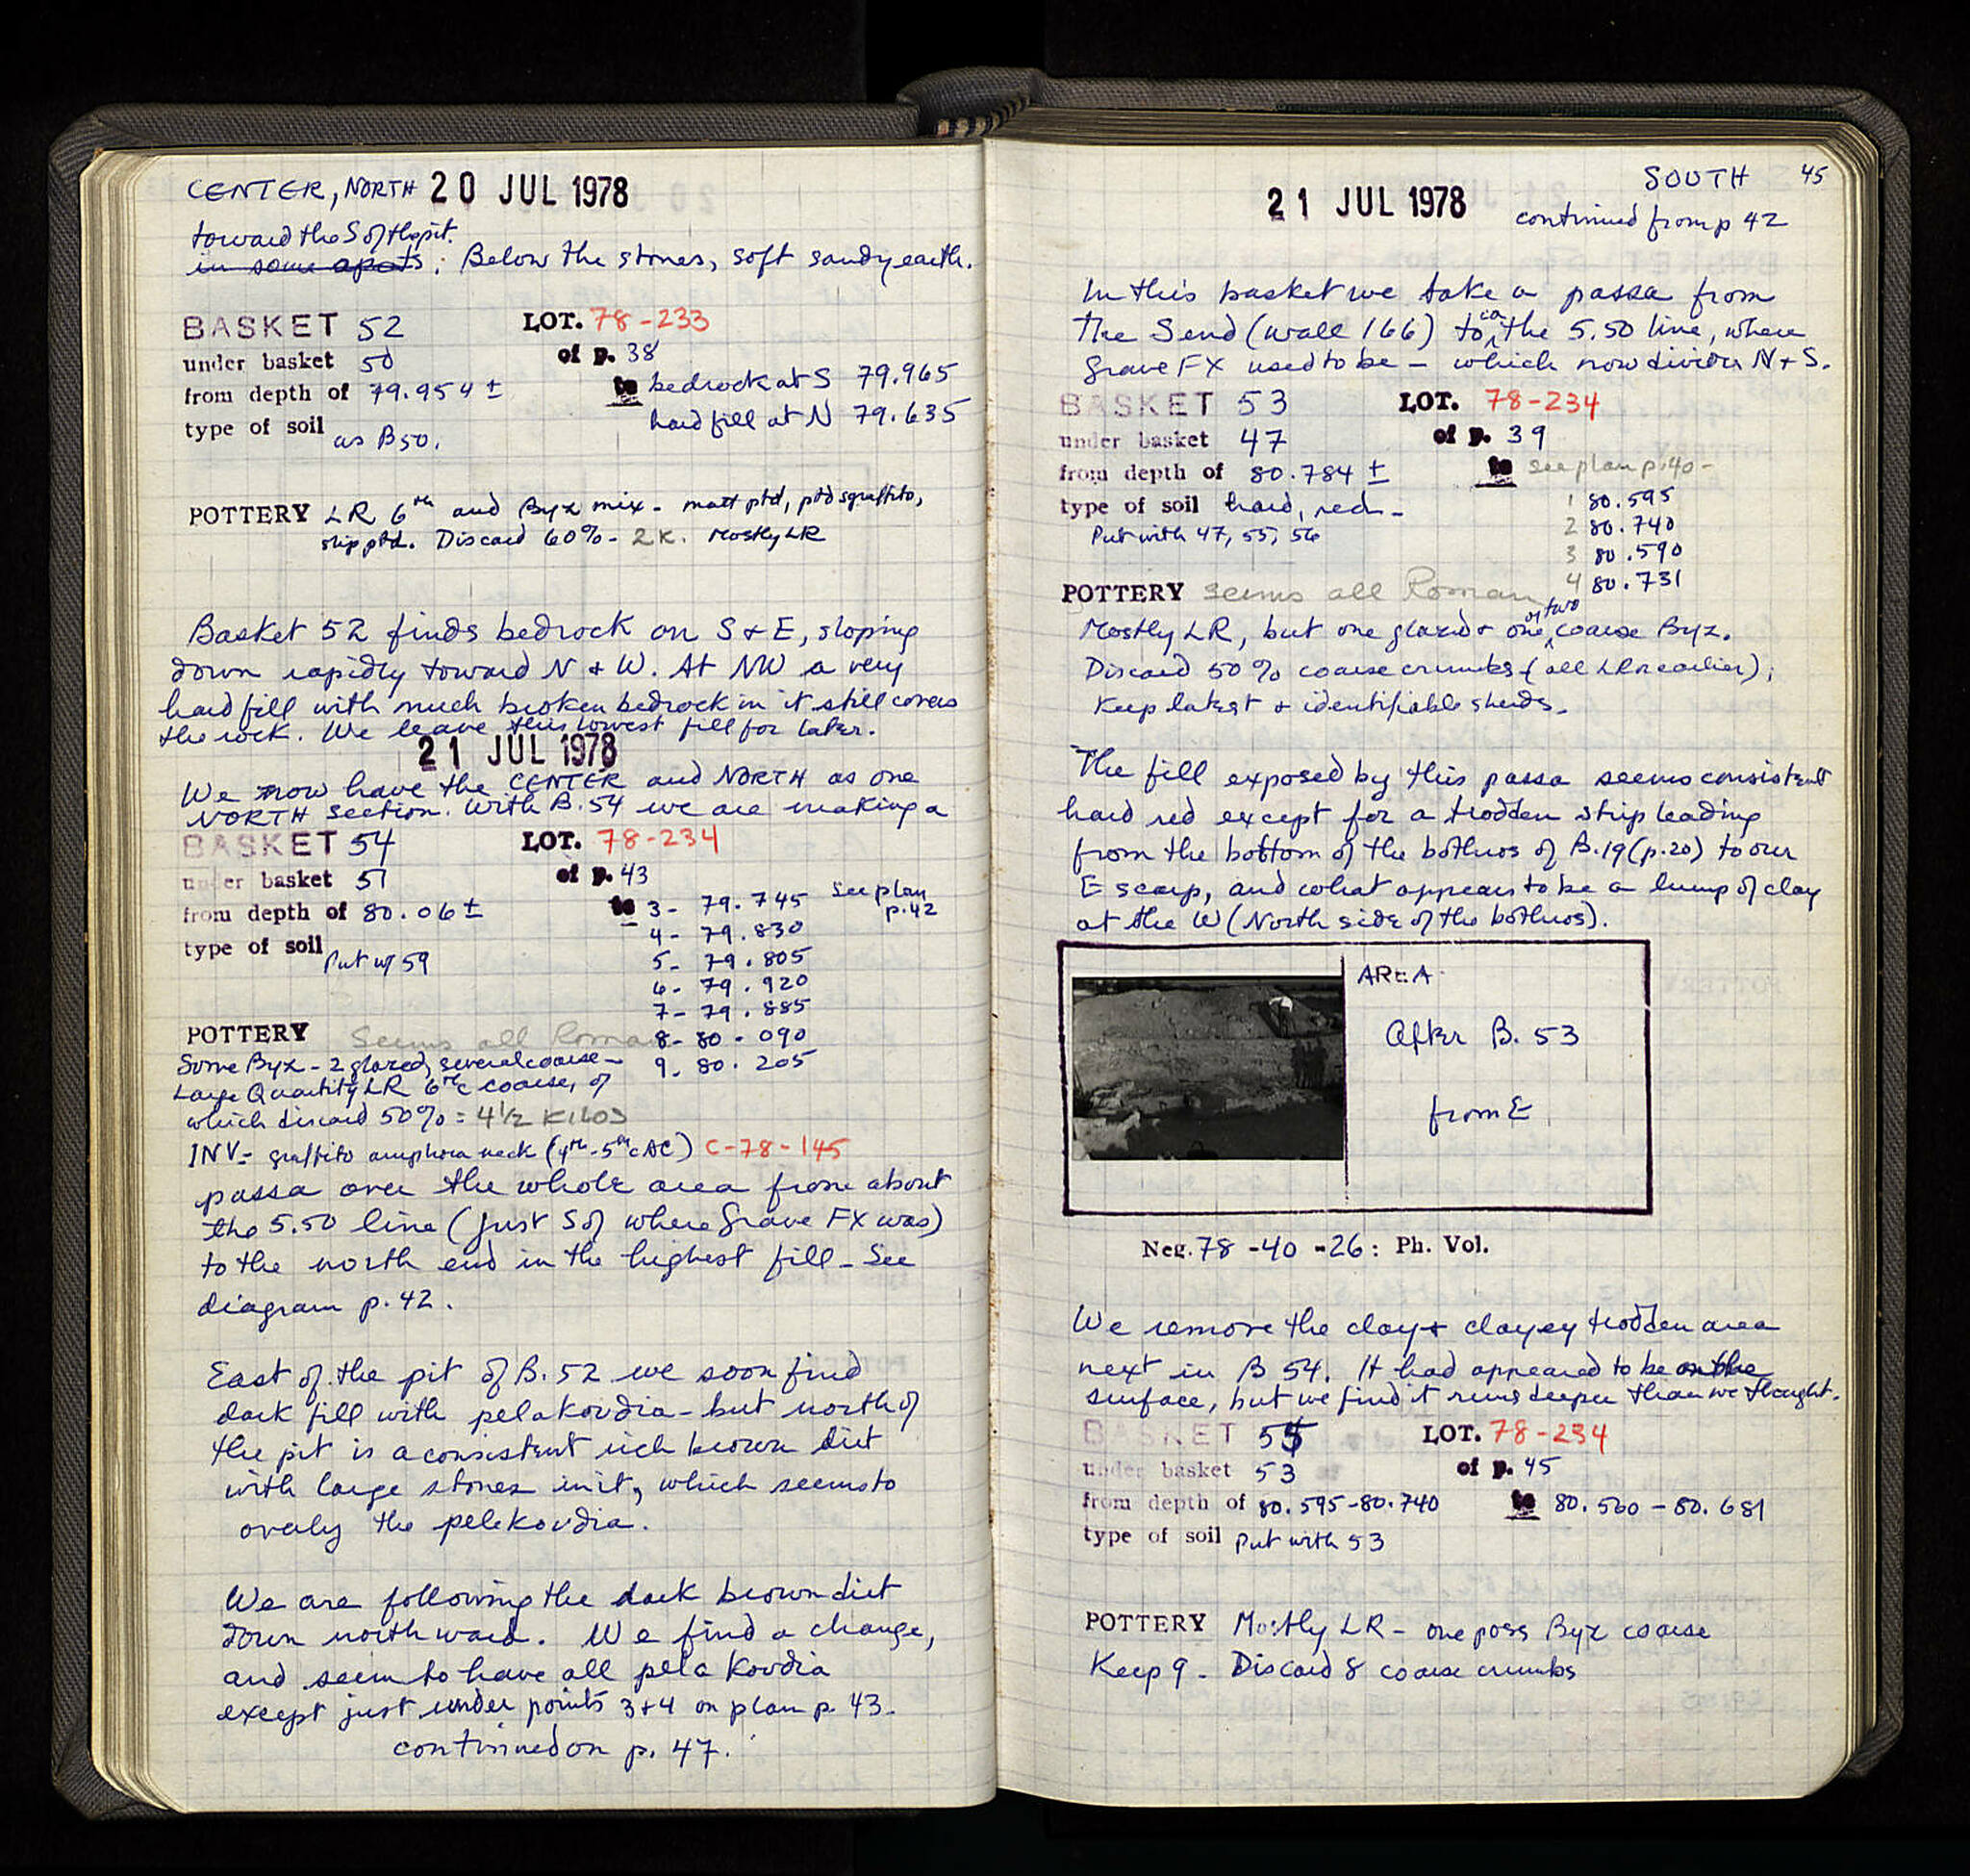 CENTER, NORTH 20 JUL 1978
toward the S of the pit.
in some spots; Below the stones, soft sandy earth.
BASKET 52 LOT. 78-233
under basket 50 of p. 38
from depth of 79.954 ± to bedrock at S 79.965
hard fill at N 79.635
type of soil as B50.
POTTERY LR 6th and Byz mix - matt ptd, ptd sgraffito,
slip ptd. Discard 60% - 2 K. Mostly LR
Basket 52 finds bedrock on S & E, sloping
down rapidly toward N & W. At NW a very
hard fill with much broken bedrock in it still covers
the rock. We leave this lowest fill for later.
21 JUL 1978
We now have the CENTER and NORTH as one
NORTH section. With B.54 we are making a
BASKET 54 LOT. 78-234
under basket 51 of p. 43
from depth of 80.06 ± to 3- 79.745 see plan
p.42
4- 79.830
type of soil Put w/ 59
5- 79.805
6- 79.920
7- 79.885
POTTERY Seems all Roman 8- 80.090
Some Byz - 2 glazed, several coarse - 9. 80.205
Large Quantity LR 6th c coarse, of
which discard 50% = 4 1/2 KILOS
INV - graffito amphora neck (4th-5th c AC) C-78-145
passa over the whole area from about
the 5.50 line (just S of where Grave FX was)
to the north end in the highest fill - See
diagram p. 42.
East of the pit of B.52 we soon find
dark fill with pelakoudia - but north of
the pit is a consistent rich brown dirt
with large stones in it, which seems to
overly the pelekoudia.
We are following the dark brown dirt
down northward. We find a change,
and seem to have all pelakoudia
except just under points 3+4 on plan p. 43.
continued on p. 47.
SOUTH 45
21 JUL 1978 continued from p 42
In this basket we take a passa from
The S end (wall 166) to ca the 5.50 line, where
Grave FX used to be - which now divides N + S.
BASKET 53 LOT. 78-234
under basket 47 of p. 39
from depth of 80.784 ± to see plan p.40 -
type of soil hard, red - 1 80.595
Put with 47, 55, 56 2 80.740
3 80.590
4 80.731
POTTERY seems all Roman
Mostly LR, but one glazed & one or two coarse Byz.
Discard 50% coarse crumbs (all LR or earlier);
Keep latest & identifiable sherds.
The fill exposed by this passa seems consistent
hard red except for a trodden strip leading
from the bottom of the bothros of B.19 (p.20) to our
E scarp, and what appears to be a lump of clay
at the W (North side of the bothros).
AREA
After B. 53
from E
Neg. 78 -40 -26: Ph. Vol.
We remove the clay & clayey trodden area
next in B 54. It had appeared to be on the
surface, but we find it runs deeper than we thought.
BASKET 55 LOT. 78-234
under basket 53 of p. 45
from depth of 80.595-80.740 to 80.560 - 80.681
type of soil Put with 53
POTTERY Mostly LR - one poss Byz coarse
Keep 9 - Discard 8 coarse crumbs